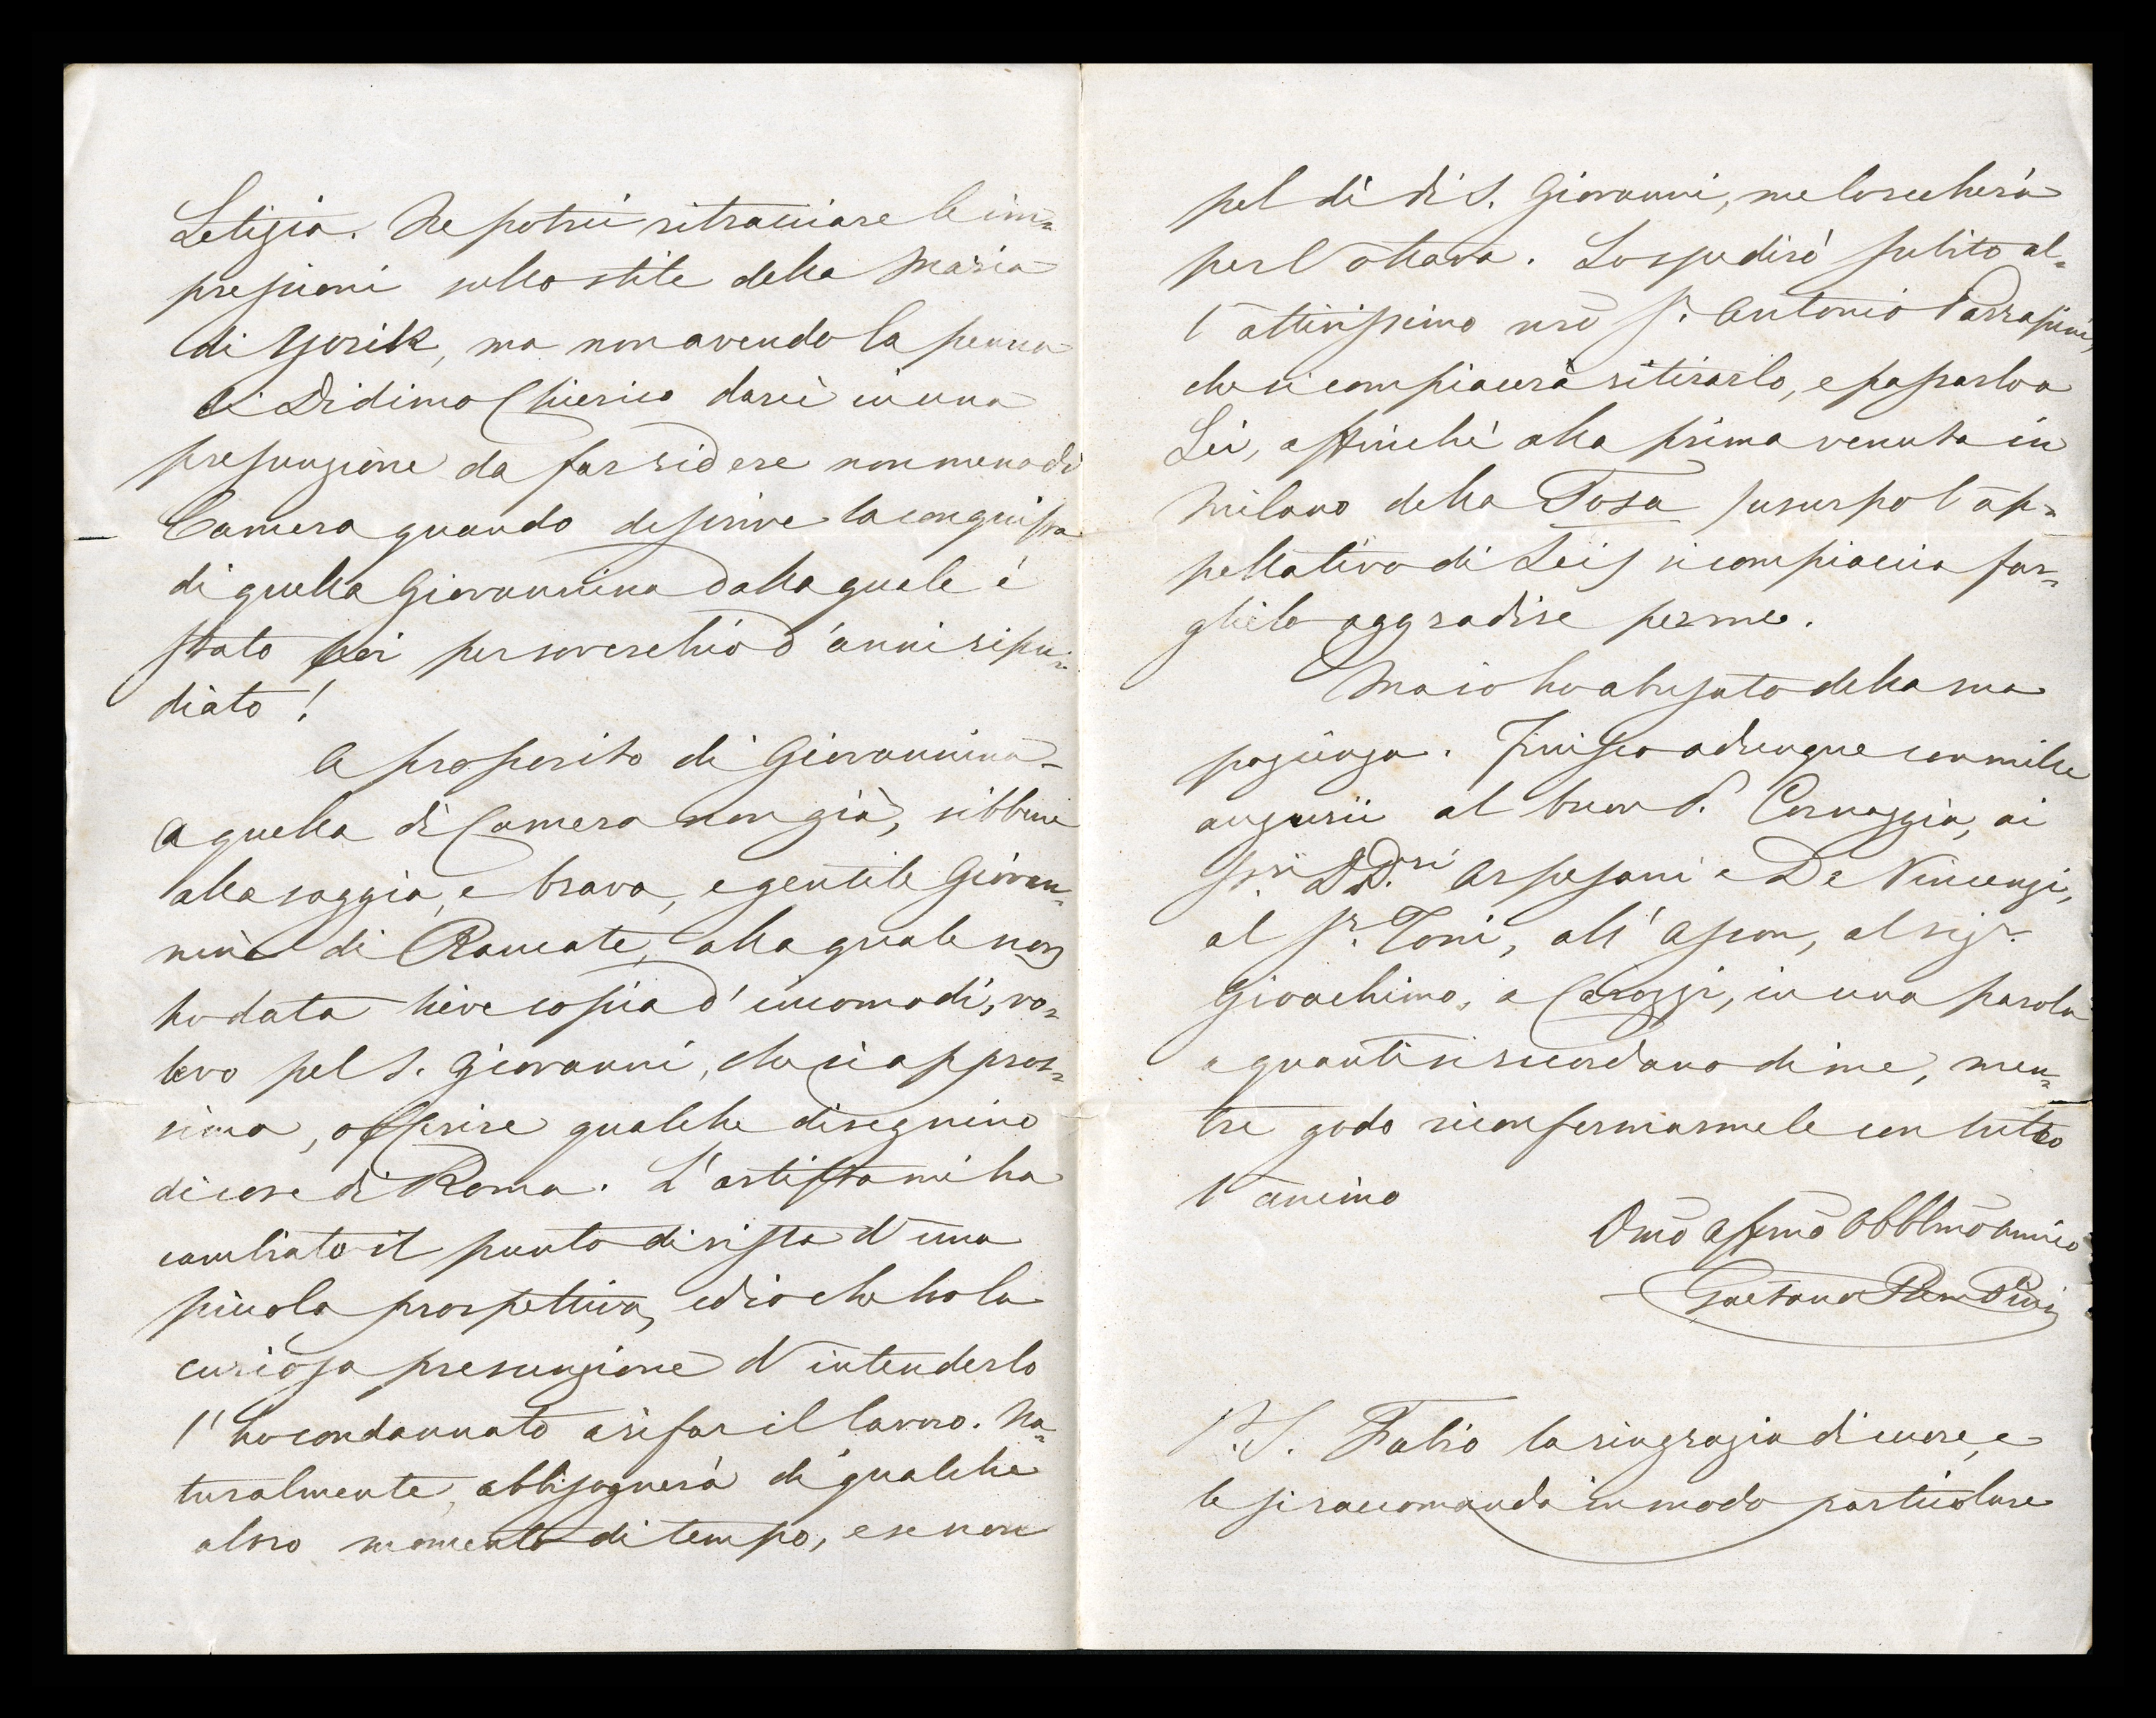 Letizia. Ne potrei ritracciare le im=
pressioni sullo stile della Maria
di Yorik, ma non avendo la penna
di Didimo Chierico darei in una
presunzione da far ridere non meno di
Camera quando descrive la conquista
di quella Giovannina dalla quale è
stato poi per soverchio d'anni ripu=
diato!
A proposito di Giovannina -
a quella di Camera non già, sibbene
alla saggia, e brava, e gentile Giovan=
nina di Roncate, alla quale non
ho data lieve copia d'incomodi, vo=
levo pel S. Giovanni, che si appros=
sima, offerire qualche disegnino
di cose di Roma. L'artista mi ha
cambiato il punto di vista d'una
piccola prospettiva, ed io che ho la
curiosa presunzione d'intenderlo
l'ho condannato a rifar il lavoro. Na=
turalmente, abbisognerà di qualche
altro momento di tempo, e se non
pel dì di S. Giovanni, me lo recherà
per l'ottava. Lo spedirò subito al=
l'ottimissimo nrō Sr. Antonio
che si compiacerà ritirarlo, e passarlo a
Lei, affinchè alla prima venuta in
Milano della Tosa (usurpo l'ap=
pellativo di Lei) si compiaccia far=
glielo aggradire per me.
Ma io ho abusato della sua
pazienza. Finisco adunque con mille
augurii al buon S. Cornaggia, ai
Sri. DD.ri Arpesani e De Vincenzi,
al Sr. Toni, all' Ason, al sigr.
Gioachimo, a Carozzi, in una parola
a quanti si ricordano di me, men=
tre godo riconfermarmele con tutto
l'animo
Dmō Affmō Obblmō amico
Gaetano
P.S. Fabio la ringrazia di cuore, e
le si raccomanda in modo particolare